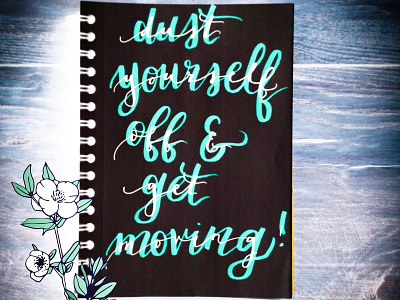 dust
yourself
off &
get
moving!